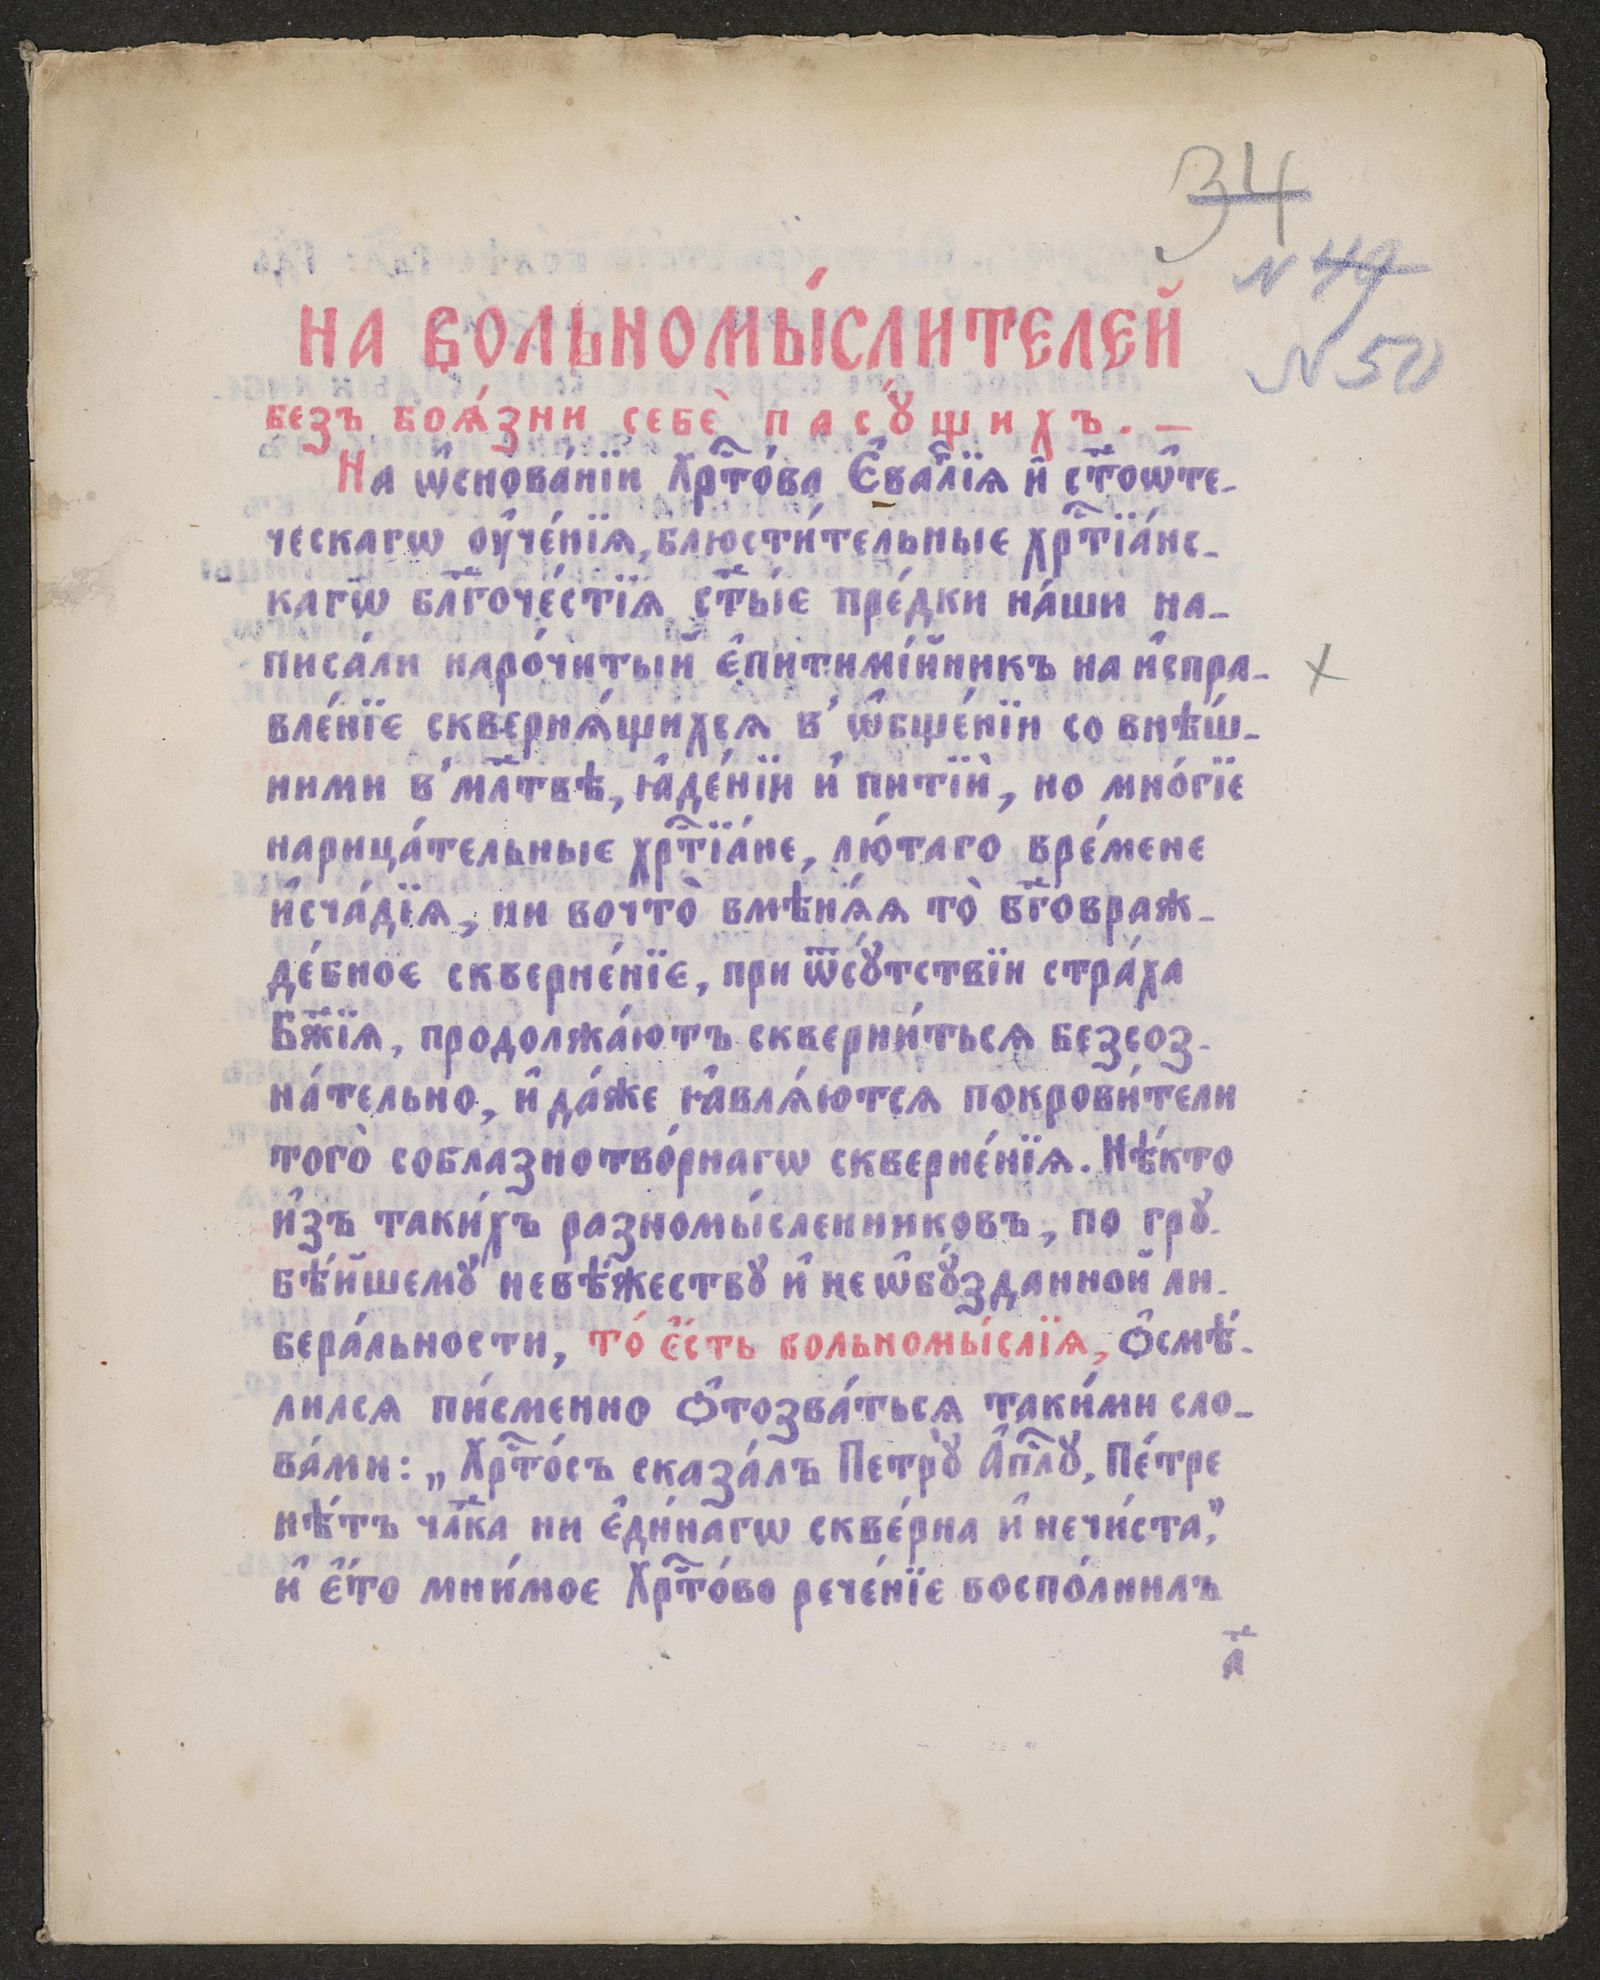 34
N 49
N 50
НА ВОЛЬНОМЫ́СЛИТЕЛЕЙ
безъ боѧ́зни себѐ пасꙋ́щихъ. —
На ѡ҆снова́нїи Хрⷭ҇то́ва Є҆ѵа҆́лїѧ и҆ ст҃оѡ҆те-
ческагѡ оу҆че́нїѧ, блюсти́тельные хрⷭ҇тїа́нс-
кагѡ бл҃гоче́стїѧ ст҃ы́е пре́дки на́ши на-
писа́ли наро́читый є҆питимі́йникъ на и҆спра-
вле́нїе скверна́щихсѧ в' ѡ҆бще́нїи со внѣ́ш-
ними в' мл҃твѣ, ꙗ҆де́нїи и҆ питїѝ, но мно́гїе
нарица́тельные хрⷭ҇тїа́не, лю́таго вре́мене
и҆сча́дїѧ, ни вочто̀ вмѣнѧ́ѧ то̀ бг҃овраж-
де́бное скверне́нїе, при ѿсꙋ́тствїи стра́ха
Бж҃їѧ, продолжа́ютъ скверни́тьсѧ безсоз-
на́тельно, и҆ да́же ꙗ҆влѧ́ютсѧ покрови́тели
того̀ соблазнотво́рнагѡ скверне́нїѧ. Нѣ́кто
и҆зъ таки́хъ разномы́сленниковъ, по грꙋ-
бѣ́йшемꙋ невѣ́жествꙋ и҆ неѡ҆бꙋ́зданной ли-
бера́льности, то́ є҆́сть вольномы́слїѧ, о҆смѣ́-
лилсѧ пи́сменно о҆тозва́тьсѧ таки́ми сло-
ва́ми: „Хрⷭ҇то́съ сказа́лъ Петрꙋ̀ А҆пⷭ҇лꙋ, Пе́тре
нѣ́тъ чл҃ка ни є҆ди́нагѡ скве́рна и҆ нечи́ста,"
и҆ є҆́то мни́мое Хрⷭ҇то́во рече́нїе воспо́лнилъ
а҃